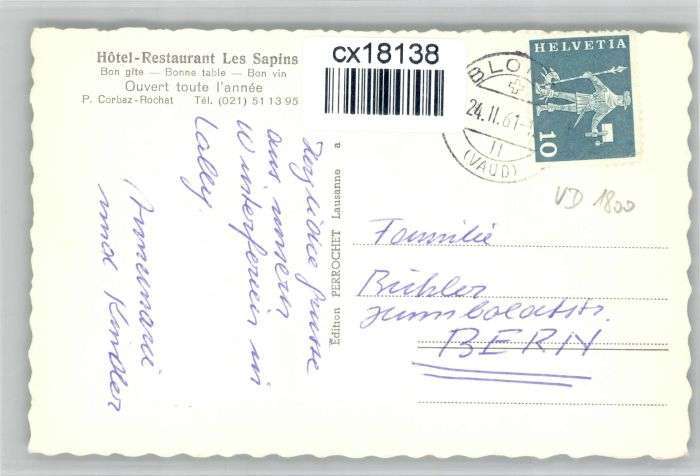 Hôtel-Restaurant Les Sapins
Bon gîte — Bonne table — Bon vin
Ouvert toute l'année
P. Corbaz-Rochat Tél. (021) 51 13 95
cx18138
HELVETIA
10
BLON
24.II.61-1
11
(VAUD)
VD 1800
Edition PERROCHET Lausanne a
Herzliche Grüsse
aus unsern
Winterferien in
Lally.
Annemarie
und Kinder
Familie
Bühler
Humboldtstr.
BERN